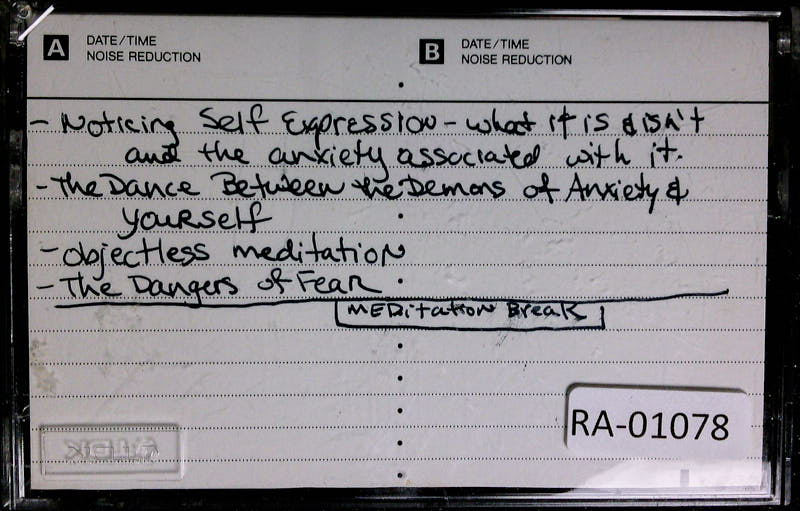 A DATE/TIME
NOISE REDUCTION
B DATE/TIME
NOISE REDUCTION
- Noticing Self Expression - what it is & isn't
and the anxiety associated with it.
- The Dance Between the Demons of Anxiety &
yourself
- objectless meditation
- The Dangers of Fear
MEDitation Break
RA-01078
TDK